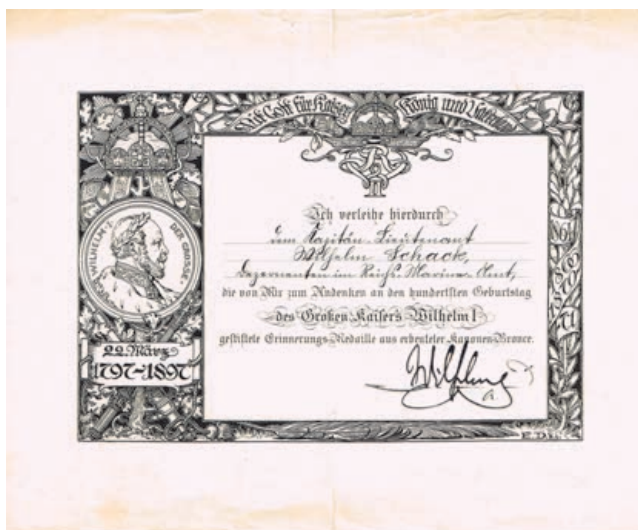 Mit Gott für Kaiser König und Vaterland
WILHELM I DER GROSSE
22. März
1797-1897
Ich verleihe hierdurch
dem Kapitän Lieutenant
Wilhelm Schack,
Dezernenten im Reichs-Marine-Amt,
die von Mir zum Andenken an den hundertsten Geburtstag
des Großen Kaisers Wilhelm I
gestiftete Erinnerungs-Medaille aus erbeuteter Kanonen-Bronce.
Wilhelm